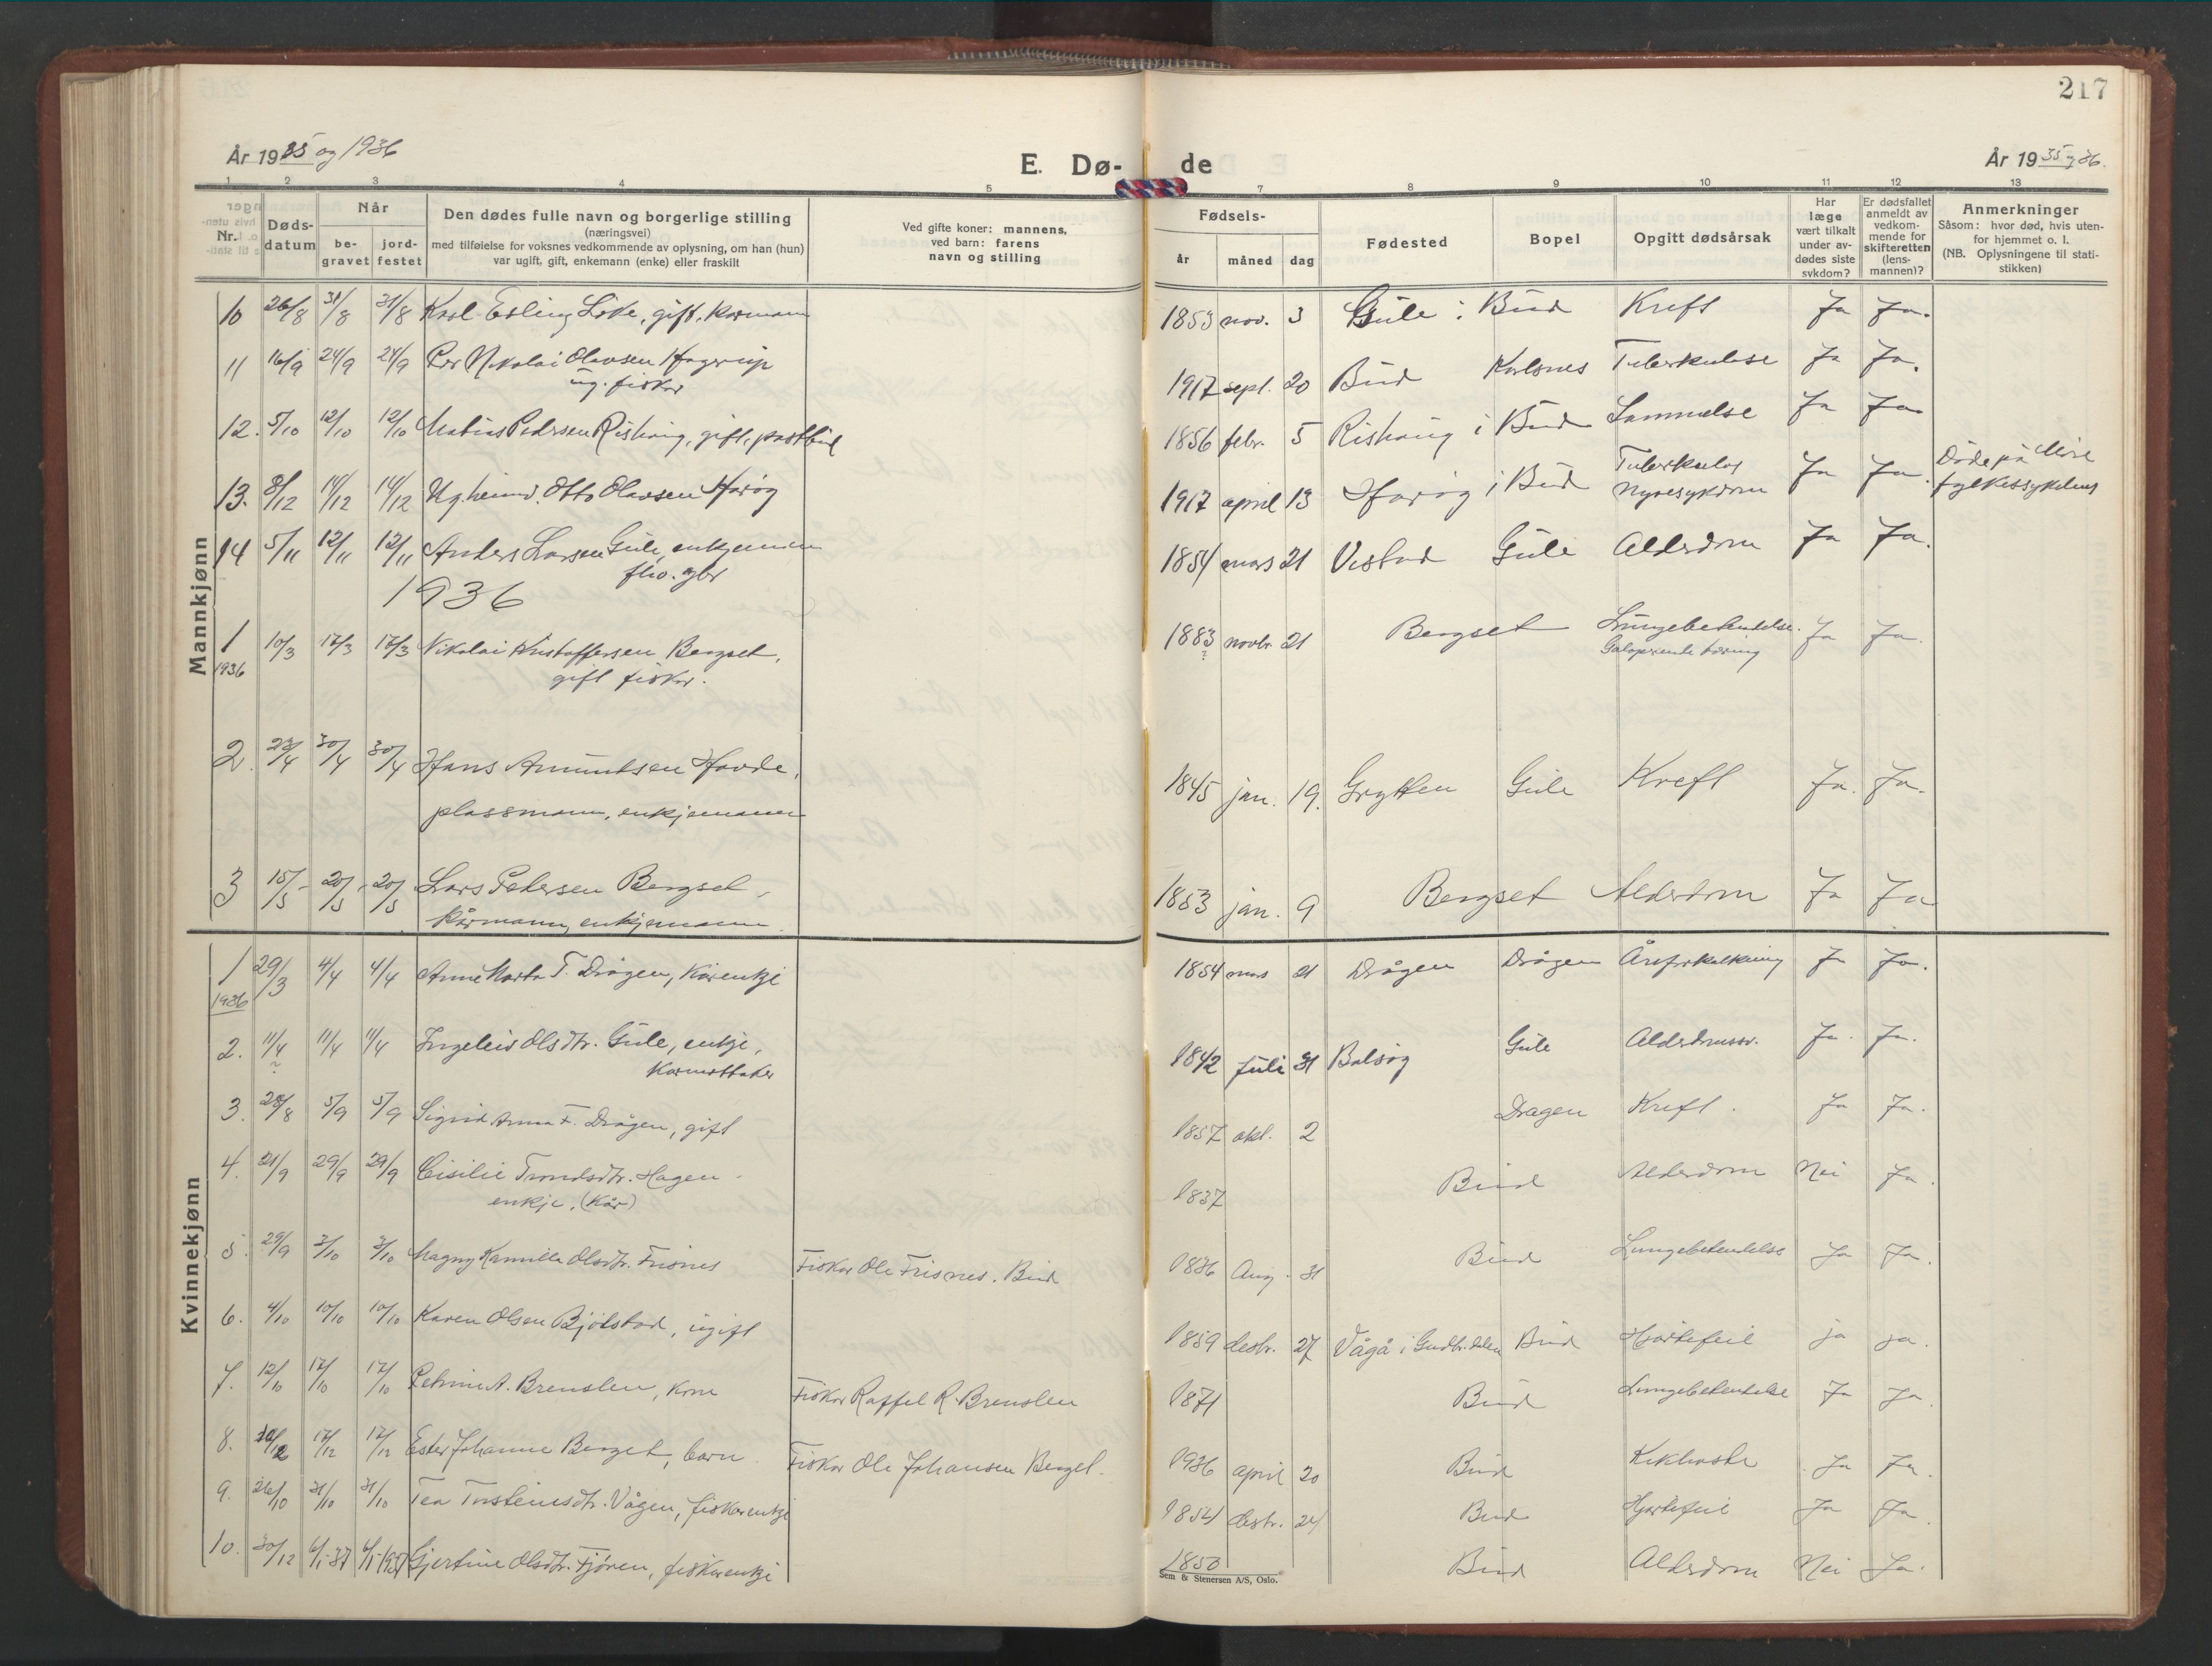 217
År 1935 og 1936
E. Dø-
de
År 1935 og 36.
1 2 3 4 5 7 8 9 10 11 12 13
Nr.
Døds-
datum
Når
be-
gravet
jord-
festet
Den dødes fulle navn og borgerlige stilling
(næringsvei)
med tilføielse for voksnes vedkommende av oplysning, om han (hun)
var ugift, gift, enkemann (enke) eller fraskilt
Ved gifte koner: mannens,
ved barn: farens
navn og stilling
Fødsels-
år måned dag
Fødested
Bopel
Opgitt dødsårsak
Har
læge
vært tilkalt
under av-
dødes siste
sykdom?
Er dødsfallet
anmeldt av
vedkom-
mende for
skifteretten
(lens-
mannen)?
Anmerkninger
Såsom: hvor død, hvis uten-
for hjemmet o. l.
(NB. Oplysningene til stati-
stikken)
Mannkjønn
10 26/8 31/8 31/8 Karl Esling gift, kårmann 1853 nov. 3 Gule i Bud Kreft Ja Ja.
11 16/9 24/9 24/9 Per Nikolai Olavsen Hagerup 1917 sept. 20 Bud Karlsnes Tuberkulose Ja Ja.
ug. fisker
12. 5/10 12/10 12/10 Matias Pedersen Rishaug, gift, postbud 1856 febr. 5 Rishaug i Bud Lammelse Ja Ja
13. 8/12 14/12 14/12 Ug. Otto Olavsen Harøg 1917 april 13 Harøg i Bud Tuberkuløs Ja Ja. Døde på Møre
nyresykdom fylkessykehus
14 5/11 12/11 12/11 Anders Larsen Gule, enkjemann 1854 mars 21 Vestad Gule Alderdom Ja Ja.
fhv. gbr
1936
1 10/3 17/3 17/3 Nikolai Kristoffersen Bergset, 1883 novbr 21 Bergset Lungebetendelse. Ja Ja.
1936 gift fisker. ? Galoperende tæring
2. 23/4 30/4 30/4 Hans Amundsen Hovde, 1845 jan. 19. Grytten Gule Kreft Ja. Ja.
plassmann, enkjemann
3 15/5 20/5 20/5 Lars Petersen Bergset, 1853 jan. 9 Bergset Alderdom Ja Ja
kårmann, enkjemann.
Kvinnekjønn
1 29/3 4/4 4/4 Anne Marta T. Drågen, kårenkje 1854 mars 21 Drågen Drågen Åreforkalkning Ja Ja.
1936
2. 11/4 11/4 11/4 Ingeleiv Olsdtr. Gule, enkje, 1842 juli 31 Bolsøg Gule Alderdomssv. Ja. Ja.
? kårmottaker
3. 28/8 5/9 5/9 Sigrid Anna F. Drågen, gift 1857 okt. 2 Dragen Kreft. Ja Ja.
4. 21/9 29/9 29/9 Cisilie Trondsdtr. Hagen 1837 Bud Alderdom Nei Ja.
enkje. (Kår)
5. 29/9 3/10 3/10 Magny Kamilla Olsdtr. Frisnes Fisker Ole Frisnes. Bud 1936 Aug. 31 Bud Lungebetendelse Ja Ja.
6. 4/10 10/10 10/10 Karen Olsen Bjølstad, ugift 1859 desbr. 27 Vågå i Gudbr.dalen Bud Hjertefeil ja ja.
7. 12/10 17/10 17/10 Petrine A. Brenslen, kone Fisker Raffel R. Brenslen 1871 Bud Lungebetendelse Ja Ja.
8. 17/12 17/12 Ester Johanne Berget, barn. Fisker Ole Johansen Berget. 1936 april 20 Bud Kikhoste Ja Ja.
9. 26/10 31/10 31/10 Tea Torsteinsdtr. Vågen, fiskerenkje 1854 desbr. 24 Bud Hjertefeil Ja Ja
10. 30/12 6/1-37 6/1 1937 Gjertine Olsdtr. Fjøren, fiskerenkje 1850 Bud Alderdom Nei Ja.
Sem & Stenersen A/S, Oslo.